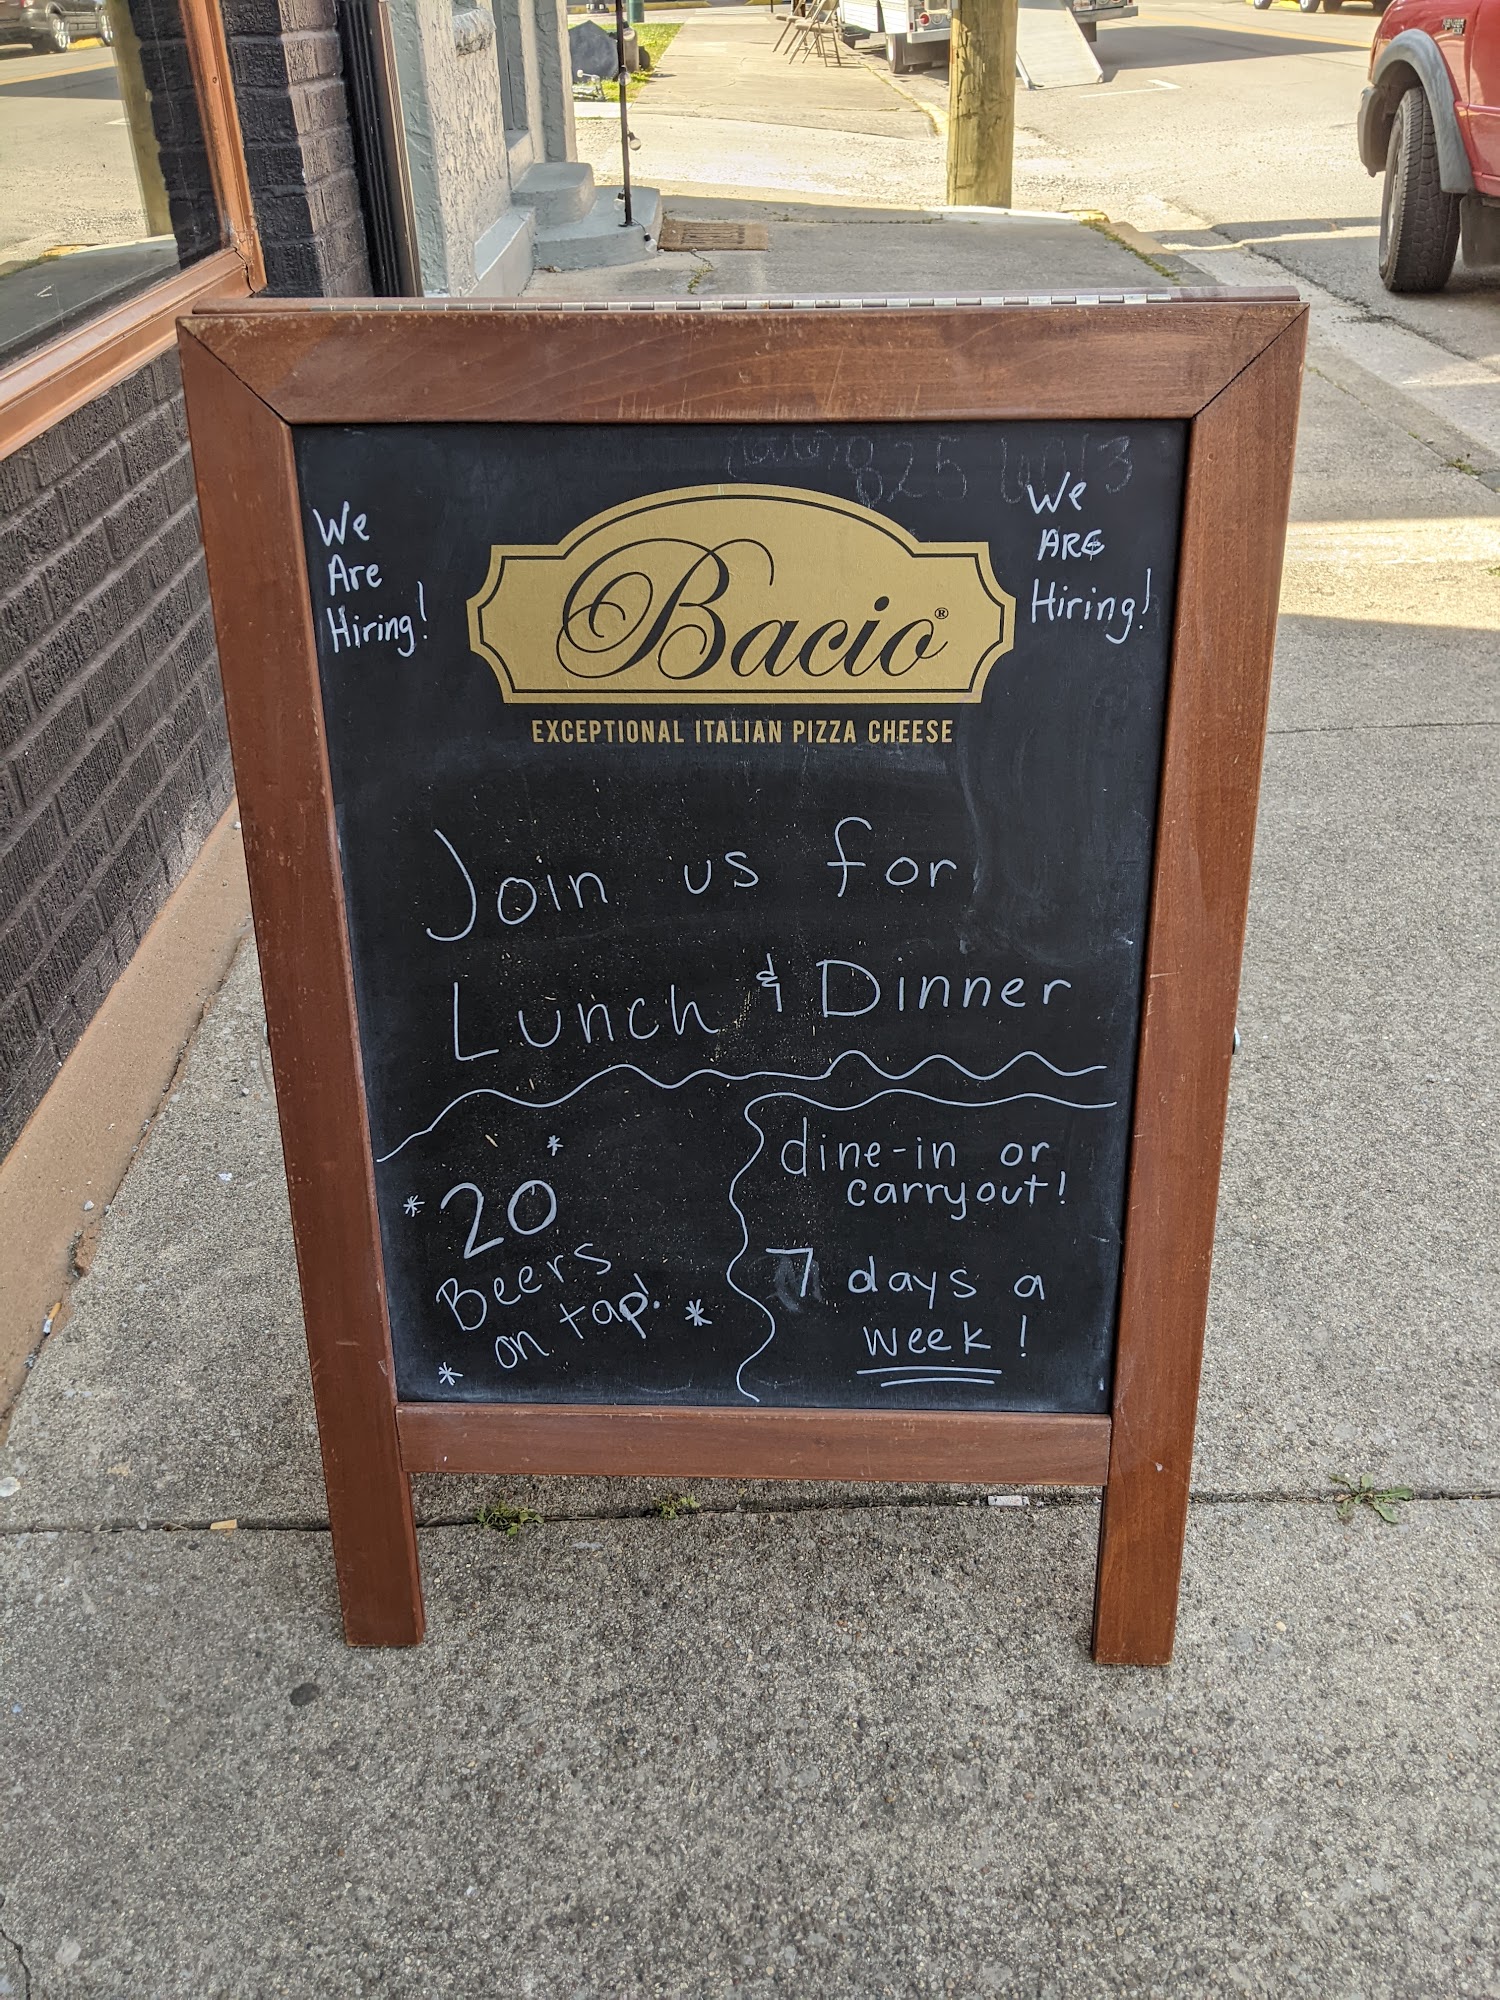 We
Are
Hiring!
We
ARE
Hiring!
Bacio®
EXCEPTIONAL ITALIAN PIZZA CHEESE
Join us for
Lunch & Dinner
20
Beers
on tap!
dine-in or
carryout!
7 days a
week!